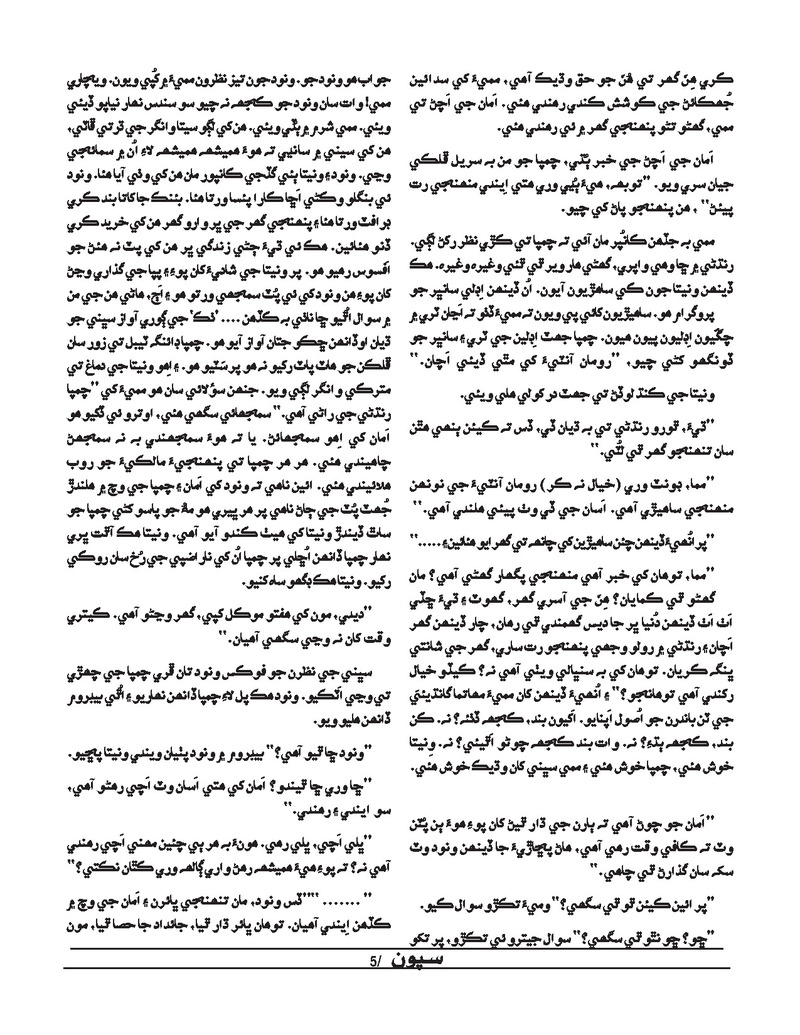 ڪري هِن گهر تي هُن جو حق وڌيڪ آهي، مميءَ کي سدائين
جُهڪائڻ جي ڪوشش ڪندي رهندي هئي. اَمان جي اَچڻ تي
ممي، گهڻو تڻو پنهنجي گهر ۾ ئي رهندي هئي.
اَمان جي اَچڻ جي خبر ٻڌي، چمپا جو من به سريل ڦلڪي
جيان سري ويو. ”توبهه، هيءَ ٻُڍي وري هتي اِيندي منهنجي رت
پيئڻ“ ، هن پنهنجو پاڻ کي چيو.
ممي به جڏهن ڪانپُر مان آئي ته چمپا تي ڪڙي نظر رکڻ لڳي.
رنڌڻي ۾ ڇا وهي واپري، گهڻي هار وير ٿي ٿئي وغيره وغيره. هڪ
ڏينهن ونيتا جون ڪي ساهڙيون آيون. اُن ڏينهن اِڊلي سانڀر جو
پروگرام هو. ساهيڙيون کائي پي ويون ته مميءَ ڏٺو ته اَڃان ٽري ۾
چڱيون اِڊليون پيون هيون. چمپا جهٽ اِڊلين جي ٽري ۽ سانڀر جو
ڏونگهو کڻي چيو، ”رومان آنٽيءَ کي مٿي ڏيئي اَچان.“
ونيتا جي ڪنڌ لوڏڻ تي جهٽ در کولي هلي ويئي.
”ڌيءَ، ٿورو رنڌڻي تي به ڌيان ڏي، ڏس ته ڪيئن ٻنهي هٿن
سان تنهنجو گهر ٿي لُٽي.“
”مما، ڊونٽ وري (خيال نه ڪر) رومان آنٽيءَ جي نونهن
منهنجي ساهيڙي آهي. اَسان جي ڏي وٺ پيئي هلندي آهي.“
”پر اُنهيءَ ڏينهن چئن ساهيڙين کي چانهه تي گهرايو هئائين ۽.....“
”مما، توهان کي خبر آهي منهنجي پگهار گهڻي آهي؟ مان
گهڻو ٿي ڪمايان؟ هِنَ جي آسري گهر، گهوٽ ۽ ڌيءَ ڇڏي
اَٺ اَٺ ڏينهن دُنيا ڀر جا ديس گهمندي ٿي رهان، چار ڏينهن گهر
اَچان ۽ رنڌڻي ۾ رولو وجهي پنهنجو رت ساڙي، گهر جي شانتي
ڀنگ ڪريان. توهان کي به سنڀالي ويٺي آهي نه؟ ڪيڏو خيال
رکندي آهي توهانجو؟“ ۽ اُنهيءَ ڏينهن کان مميءَ مهاتما گانڌيءَ
جي ٽن باندرن جو اُصول اَپنايو. اَکيون بند، ڪجهه ڏٺئه؟ نه. ڪن
بند، ڪجهه ٻڌءِ؟ نه. وات بند ڪجهه چوڻو اٿيئي؟ نه. ونيتا
خوش هئي، چمپا خوش هئي ۽ ممي سڀني کان وڌيڪ خوش هئي.
”اَمان جو چوڻ آهي ته ٻارن جي ڌار ٿيڻ کان پوءِ هوءَ ٻن پُٽن
وٽ ته ڪافي وقت رهي آهي، هاڻ پڇاڙيءَ جا ڏينهن ونود وٽ
سک سان گذارڻ ٿي چاهي.“
”پر ائين ڪيئن ٿو ٿي سگهي؟“ وميءَ تڪڙو سوال ڪيو.
”ڇو؟ ڇو نٿو ٿي سگهي؟“ سوال جيترو ئي تڪڙو، پر تکو
جواب هو ونود جو. ونود جون تيز نظرون مميءَ ۾ کُپي ويون. ويچاري
ممي! وات سان ونود جو ڪجهه نه چيو سو سندس نهار نياپو ڏيئي
ويئي. ممي شرم ۾ ٻڏي ويئي. هن کي لڳو سيتا وانگر جي ڌرتي ڦاٽي،
هن کي سيني ۾ سانڍي ته هوءَ هميشهه هميشهه لاءِ اُن ۾ سمائجي
وڃي. ونود ۽ ونيتا ٻئي گڏجي ڪانپور مان هن کي وٺي آيا هئا. ونود
ئي بنگلو وڪڻي اَڇا ڪارا پئسا ورتا هئا. بئنڪ جا کاتا بند ڪري
ڊرافٽ ورتا هئا ۽ پنهنجي گهر جي ڀر وارو گهر هن کي خريد ڪري
ڏنو هئائين. هڪ ئي ڌيءَ ڄڻي زندگي ڀر هن کي پٽ نه هئڻ جو
اَفسوس رهيو هو. پر ونيتا جي شاديءَ کان پوءِ ۽ پپا جي گذاري وڃڻ
کان پوءِ هن ونود کي ئي پُٽ سمجهي ورتو هو ۽ اَڄ، هاڻي هن جي من
۾ سوال اُٿيو ڇا ناٺي به ڪڏهن .... ’ٺڪ‘ جي ڳوري آواز سڀني جو
ڌيان اوڏانهن ڇڪو جتان آواز آيو هو. چمپا ڊائنگ ٽيبل تي زور سان
ڦلڪن جو هاٽ پاٽ رکيو نه هو پر سَٽيو هو. ۽ اِهو ونيتا جي دماغ تي
هتڙڪي وانگر لڳي ويو. جنهن سؤلائي سان هو مميءَ کي ”چمپا
رنڌڻي جي راڻي آهي.“ سمجهائي سگهي هئي، اوترو ئي ڏکيو هو
اَمان کي اِهو سمجهائڻ. يا ته هوءَ سمجهندي به نه سمجهڻ
چاهيندي هئي. هر هر چمپا تي پنهنجيءَ مالڪيءَ جو روب
هلائيندي هئي. ائين ناهي ته ونود کي اَمان ۽ چمپا جي وچ ۾ هلندڙ
جُهٽ پُٽ جي ڄاڻ ناهي پر هر ڀيري هو ماءُ جو پاسو کڻي چمپا جو
ساٿ ڏيندڙ ونيتا کي هيٺ ڪندو آيو آهي. ونيتا هڪ آڻت ڀري
نهار چمپا ڏانهن اُڇلي پر چمپا اُن کي نار اضپي جي رُخ سان روڪي
رکيو. ونيتا هڪ ڊگهو ساهه کنيو.
”ديدي، مون کي هفتو موڪل کپي، گهر وڃڻو آهي. ڪيتري
وقت کان نه وڃي سگهي آهيان.“
سڀني جي نظرن جو فوڪس ونود تان ڦري چمپا جي چهري
تي وڃي اَٽڪيو. ونود هڪ پل لاءِ چمپا ڏانهن نهاريو ۽ اُٿي بيڊروم
ڏانهن هليو ويو.
”ونود ڇا ٿيو آهي؟“ بيڊروم ۾ ونود پٺيان ويندي ونيتا پڇيو.
”ڇا وري ڇا ٿيندو؟ اَمان کي هتي اَسان وٽ اَچي رهڻو آهي،
سو ايندي ۽ رهندي.“
”ڀلي اَچي، ڀلي رهي. هونءَ به هر ٻي چئين مهني اَچي رهندي
آهي نه؟ ته پوءِ هيءَ هميشهه رهڻ واري ڳالهه وري ڪٿان نڪتي؟“
” ....... “”ڏس ونود، مان تنهنجي ڀائرن ۽ اَمان جي وچ ۾
ڪڏهن اِيندي آهيان. توهان ڀائر ڌار ٿيا، جائداد جا حصا ٿيا، مون
سپون /5